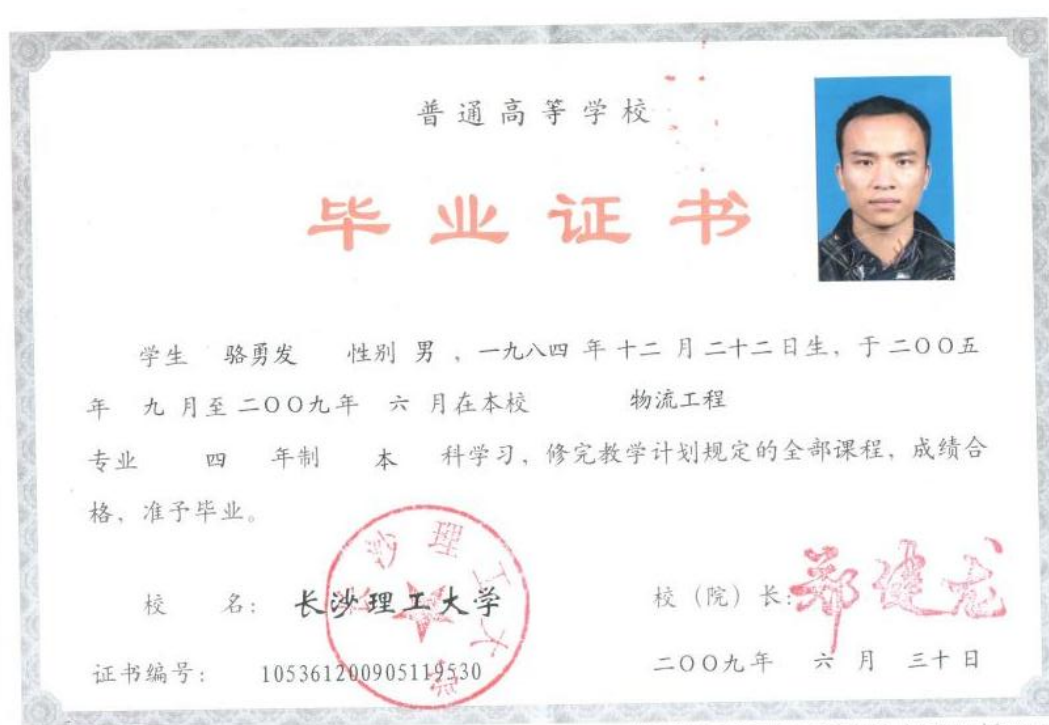 普通高等学校
毕业证书
学生 骆勇发 性别 男 ，一九八四 年 十二 月 二十二 日生，于 二OO五
年 九 月至 二OO九年 六 月在本校 物流工程
专业 四 年制 本 科学习，修完教学计划规定的全部课程，成绩合
格，准予毕业。
校 名： 长沙理工大学
校（院）长: 郑健龙
长沙理工大学
证书编号： 105361200905119530
二OO九年 六 月 三十 日